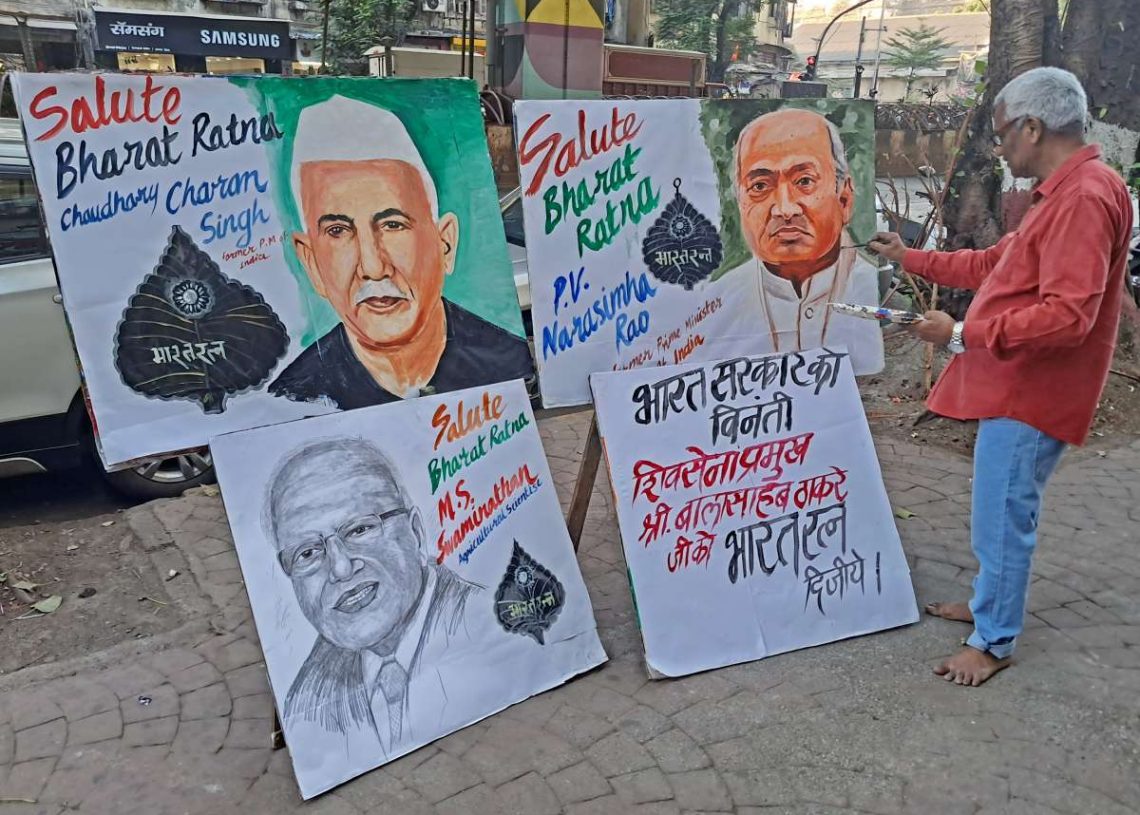 सॅमसंग SAMSUNG
Salute
Bharat Ratna
Chaudhary Charan
Singh
Former P.M of
India
भारतरत्न
Salute
Bharat
Ratna
भारतरत्न
P.V.
Narasimha
Rao
Former Prime Minister
of India
Salute
Bharat Ratna
M.S.
Swaminathan
Agricultural Scientise
भारतरत्न
भारत सरकारको
विनंती
शिवसेनाप्रमुख
श्री. बाळासाहेब ठाकरे
जीको भारतरत्न
दिजीये।